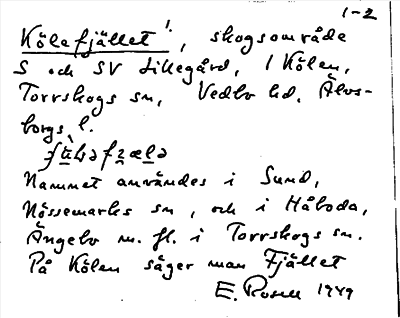 1-2
Kölefjället!, skogsområde
S och SV Lillegård, 1 Kölen,
Torrskogs sn, Vedbo hd, Älvs-
borgs l.
Namnet användes i Sund,
Nössemarks sn, och i Håboda,
Ängebo m. fl. i Torrskogs sn.
På Kölen säger man Fjället
E. Rosell 1949